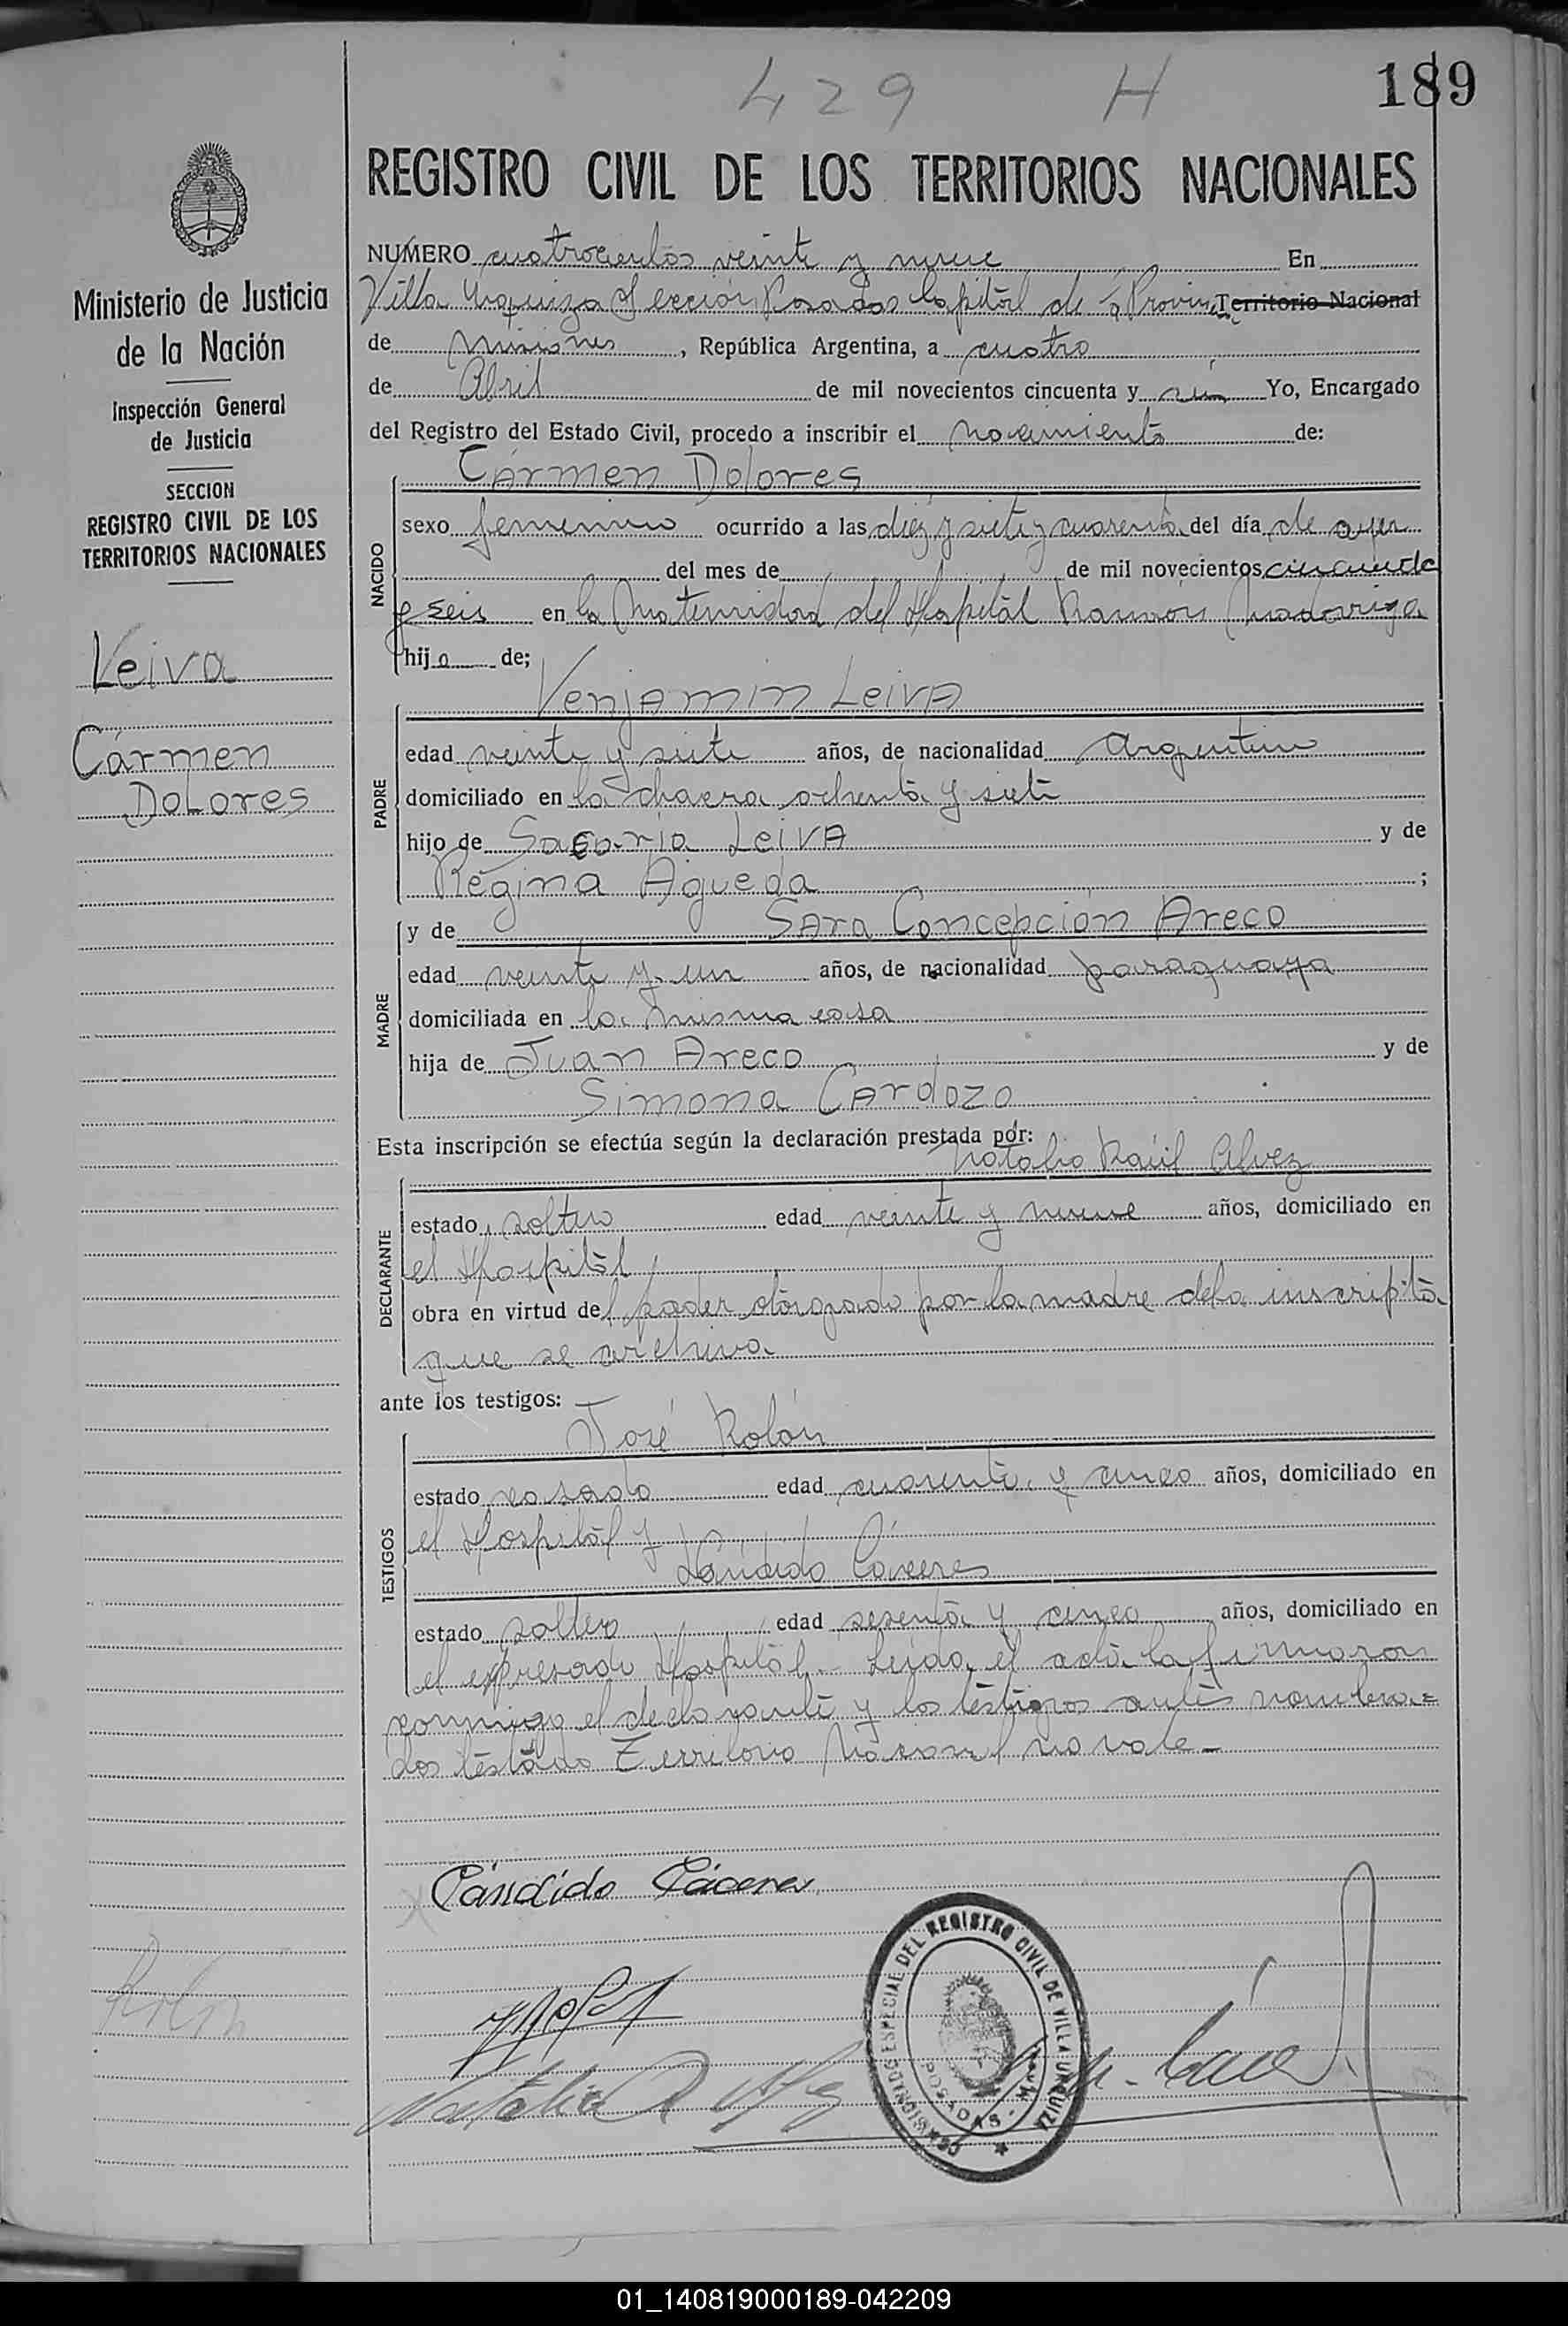 429 H 189
REGISTRO CIVIL DE LOS TERRITORIOS NACIONALES
Ministerio de Justicia
de la Nación
Inspección General
de Justicia
SECCION
REGISTRO CIVIL DE LOS
TERRITORIOS NACIONALES
Leiva
Cármen
Dolores
NUMERO cuatrocientos veinte y nueve En
Villa Urquiza Sección Posadas Capital de la Provincia Territorio Nacional
de Misiones, República Argentina, a cuatro
de Abril de mil novecientos cincuenta y seis Yo, Encargado
del Registro del Estado Civil, procedo a inscribir el nacimiento de:
Cármen Dolores
NACIDO
sexo femenino ocurrido a las diez y siete y cuarenta del día de ayer
del mes de de mil novecientos cincuenta
y seis en la Maternidad del Hospital Ramón Madariaga
hija de;
Venjamin Leiva
PADRE
edad veinte y siete años, de nacionalidad Argentino
domiciliado en la chacra ochenta y siete
hijo de Sacaria Leiva y de
Regina Agueda ;
y de Sara Concepción Areco
MADRE
edad veinte y un años, de nacionalidad paraguaya
domiciliada en la misma casa
hija de Juan Areco y de
Simona Cardozo
Esta inscripción se efectúa según la declaración prestada por:
Natalio Raúl Alvez
DECLARANTE
estado soltero edad veinte y nueve años, domiciliado en
el Hospital
obra en virtud del poder otorgado por la madre de la inscripta
que se archiva
ante los testigos:
José Rolón
TESTIGOS
estado casado edad cuarenta y cinco años, domiciliado en
el Hospital y
Cándido Cáceres
estado soltero edad sesenta y cinco años, domiciliado en
el expresado Hospital.- Leida el acta la firmaron
conmigo el declarante y los testigos antes nombra=
dos testado Territorio Nacional no vale-
Cándido Cáceres
Rolon
COMISIONADO ESPECIAL DEL REGISTRO CIVIL DE VILLA URQUIZA
POSADAS - Mnes.
01_140819000189-042209